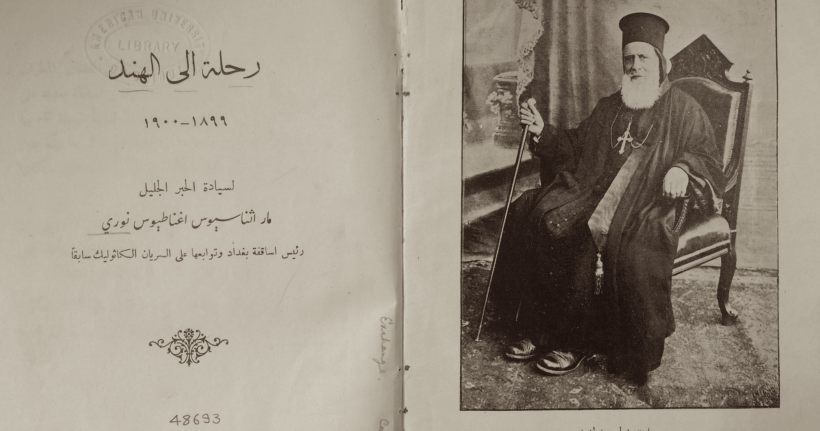 AMERICAN UNIVERSITY
LIBRARY
رحلة الى الهند
١٨٩٩-١٩٠٠
لسيادة الحبر الجليل
مار اثناسيوس اغناطيوس نوري
رئيس اساقفة بغداد وتوابعها على السريان الكاثوليك سابقاً
Exchange.
48693